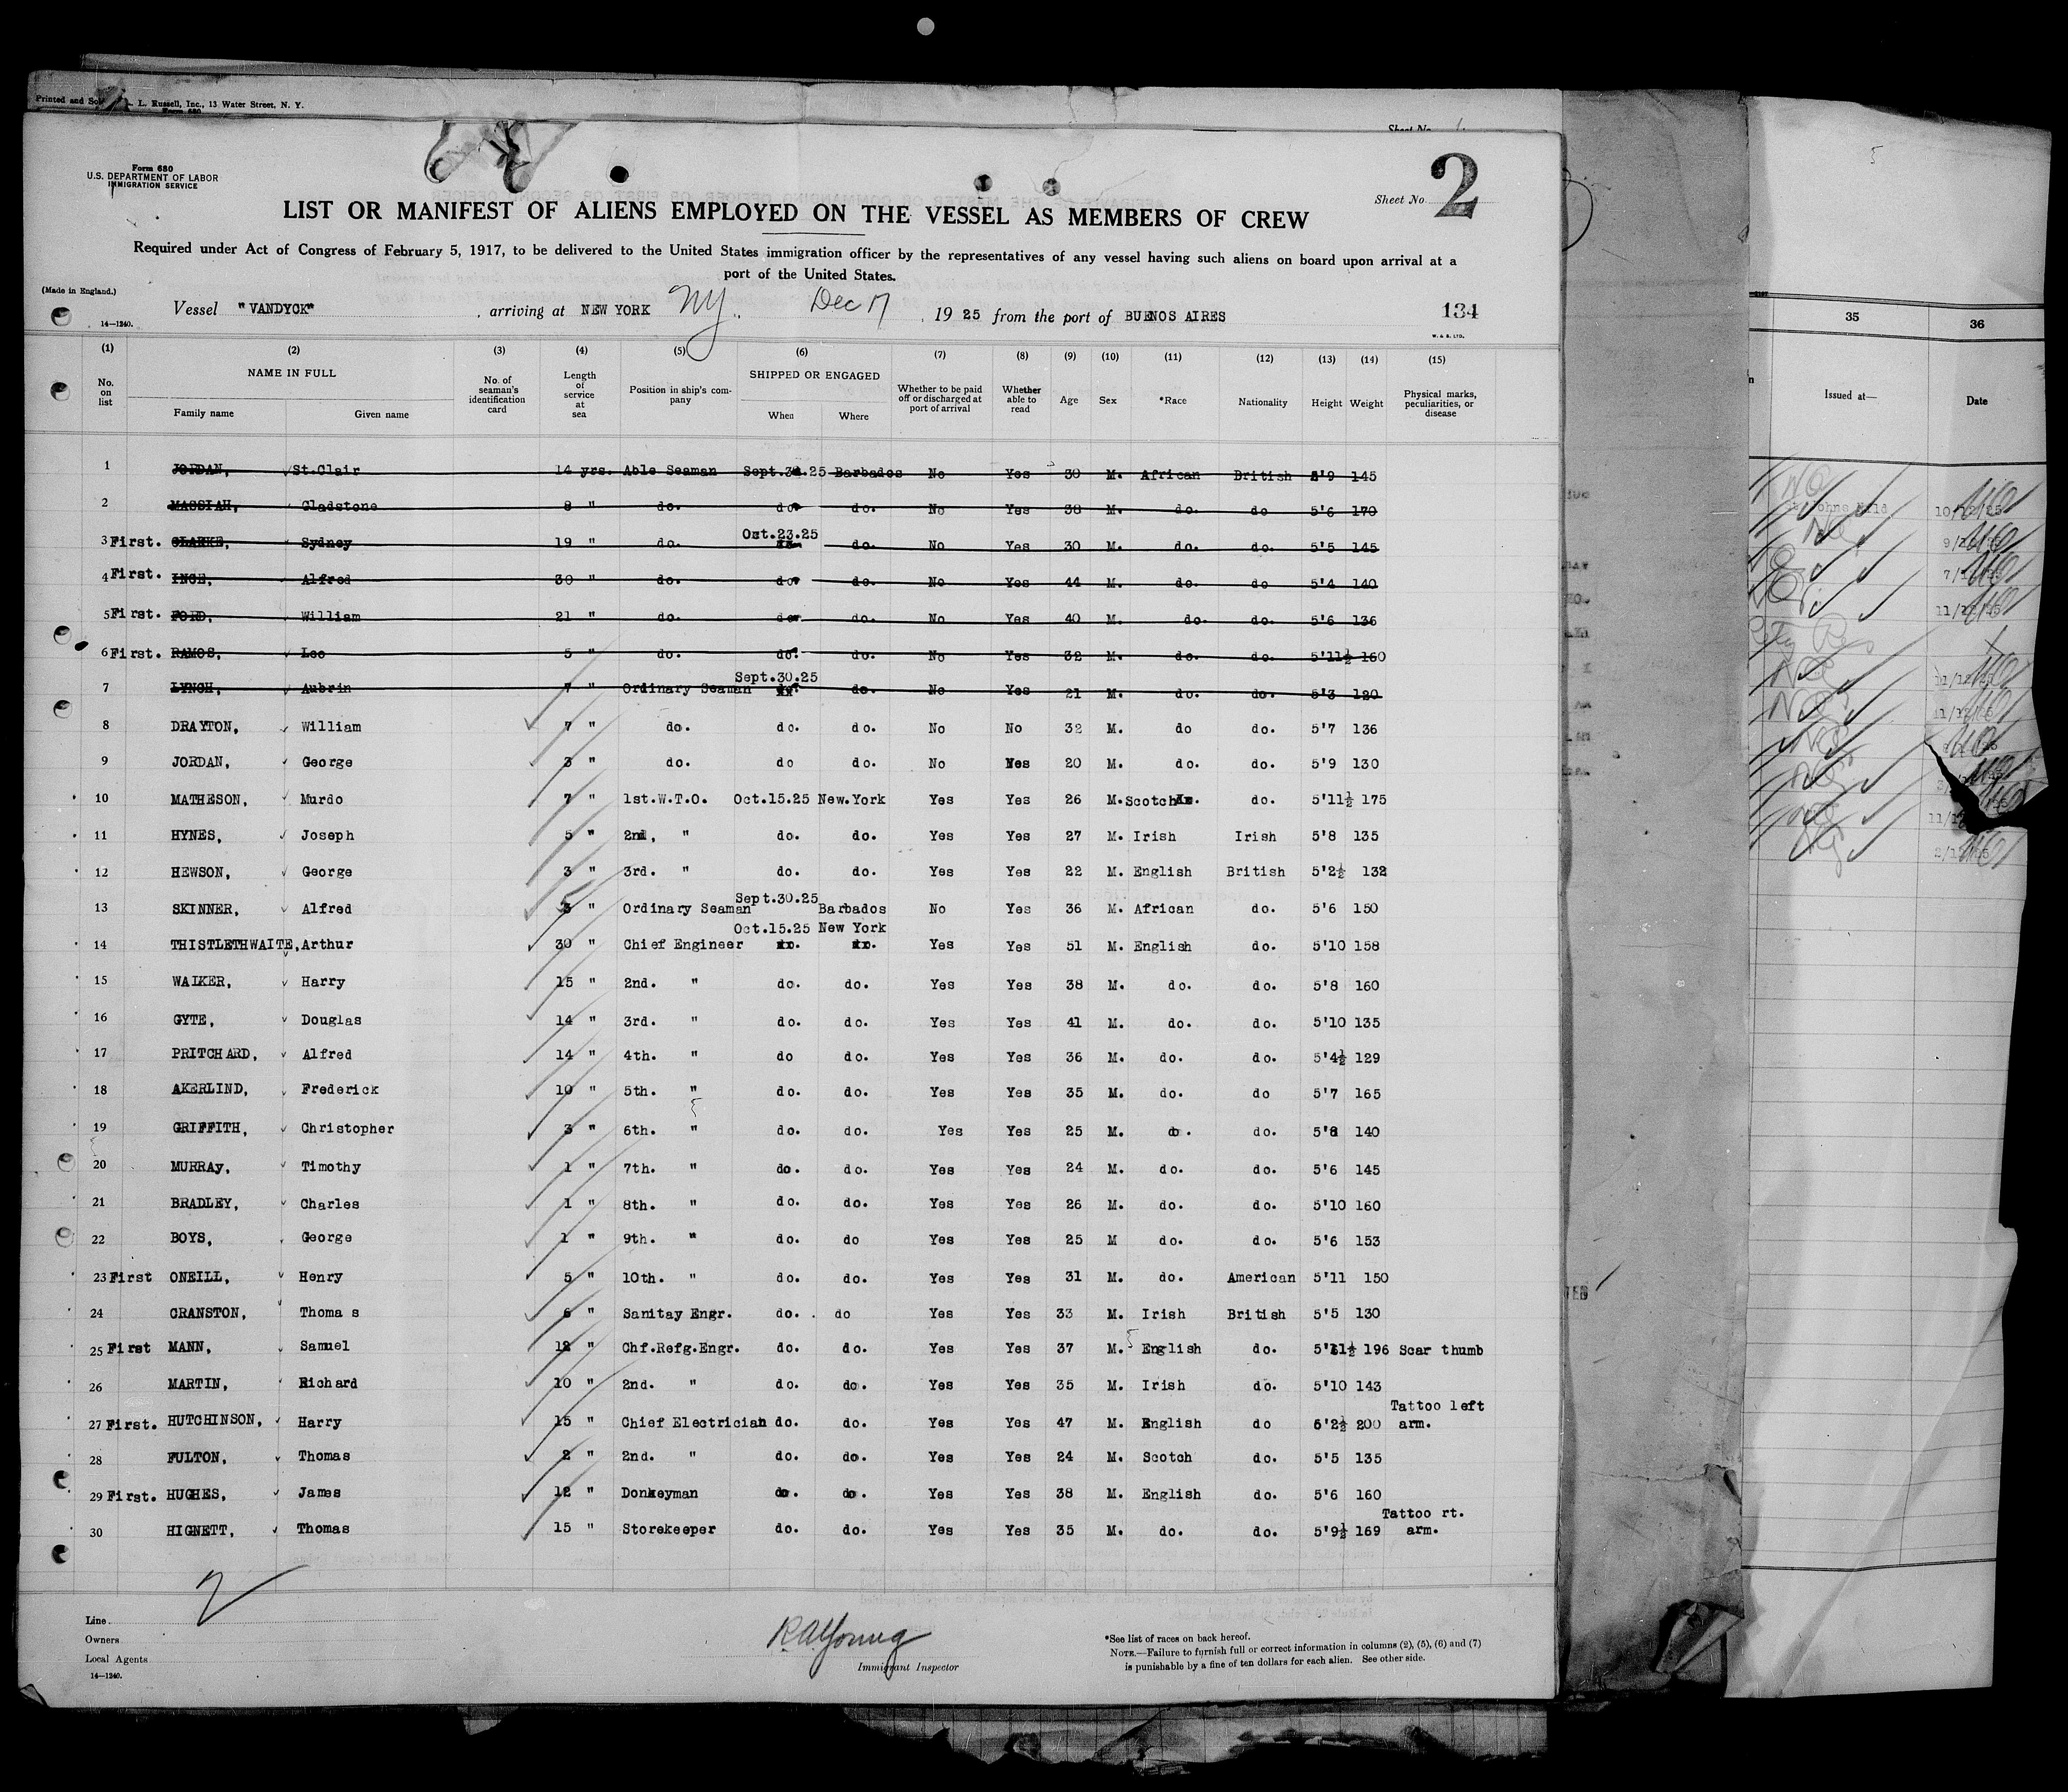 Printed and Sol L. L. Russell, Inc., 13 Water Street, N. Y.
Form 680
Sheet No.
Form 680
U.S. DEPARTMENT OF LABOR
IMMIGRATION SERVICE
Sheet No. 2
LIST OR MANIFEST OF ALIENS EMPLOYED ON THE VESSEL AS MEMBERS OF CREW
Required under Act of Congress of February 5, 1917, to be delivered to the United States immigration officer by the representatives of any vessel having such aliens on board upon arrival at a
port of the United States.
(Made in England.)
14—1240.
Vessel "VANDYCK" , arriving at NEW YORK NY. Dec 17 , 19 25 from the port of BUENOS AIRES 134
W. & S. LTD.
(1) (2) (3) (4) (5) (6) (7) (8) (9) (10) (11) (12) (13) (14) (15)
No. on list NAME IN FULL Family name Given name No. of seaman's identification card Length of service at sea Position in ship's com-pany SHIPPED OR ENGAGED When Where Whether to be paid off or discharged at port of arrival Whether able to read Age Sex *Race Nationality Height Weight Physical marks, peculiarities, or disease
1 JORDAN, St.Clair 14 yrs. Able Seaman Sept.30.25 Barbados No Yes 30 M. African British 5'9 145
2 MASSIAH, Gladstone 8 " do. do. do. No Yes 38 M. do. do 5'6 170
3 First. CLARKE, Sydney 19 " do. Oct.23.25 do. No Yes 30 M. do. do. 5'5 145
4 First. INCE, Alfred 30 " do. do. do. No Yes 44 M. do. do 5'4 140
5 First. FORD, William 21 " do. do. do. No Yes 40 M. do. do. 5'6 136
6 First. RAMOS, Leo 5 " do. do. do. No Yes 32 M. do. do. 5'11½ 160
7 LYNCH, Aubrin 7 " Ordinary Seaman Sept.30.25 do. No Yes 21 M. do. do. 5'3 120
8 DRAYTON, William 7 " do. do. do. No No 32 M. do do. 5'7 136
9 JORDAN, George 3 " do. do do. No Yes 20 M. do. do. 5'9 130
10 MATHESON, Murdo 7 " 1st.W.T.O. Oct.15.25 New.York Yes Yes 26 M. Scotch do. 5'11½ 175
11 HYNES, Joseph 5 " 2nd, " do. do. Yes Yes 27 M. Irish Irish 5'8 135
12 HEWSON, George 3 " 3rd. " do. do. Yes Yes 22 M. English British 5'2½ 132
13 SKINNER, Alfred 5 " Ordinary Seaman Sept.30.25 Barbados No Yes 36 M. African do. 5'6 150
14 THISTLETHWAITE, Arthur 30 " Chief Engineer Oct.15.25 New York Yes Yes 51 M. English do. 5'10 158
15 WALKER, Harry 15 " 2nd. " do. do. Yes Yes 38 M. do. do. 5'8 160
16 GYTE, Douglas 14 " 3rd. " do. do. Yes Yes 41 M. do. do. 5'10 135
17 PRITCHARD, Alfred 14 " 4th. " do do. Yes Yes 36 M. do. do. 5'4½ 129
18 AKERLIND, Frederick 10 " 5th. " do. do. Yes Yes 35 M. do. do 5'7 165
19 GRIFFITH, Christopher 3 " 6th. " do. do. Yes Yes 25 M. do. do. 5'8 140
20 MURRAy, Timothy 1 " 7th. " do. do. Yes Yes 24 M. do. do. 5'6 145
21 BRADLEY, Charles 1 " 8th. " do. do. Yes Yes 26 M. do. do. 5'10 160
22 BOYS, George 1 " 9th. " do. do Yes Yes 25 M do. do. 5'6 153
23 First ONEILL, Henry 5 " 10th. " do. do. Yes Yes 31 M. do. American 5'11 150
24 CRANSTON, Thoma s 6 " Sanitay Engr. do. . do Yes Yes 33 M. Irish British 5'5 130
25 First MANN, Samuel 12 " Chf.Refg.Engr. do. do. Yes Yes 37 M. English do. 5'11½ 196 Scar thumb
26 MARTIN, Richard 10 " 2nd. " do. do. Yes Yes 35 M. Irish do. 5'10 143
27 First. HUTCHINSON, Harry 15 " Chief Electrician do. do. Yes Yes 47 M. English do 6'2½ 200 Tattoo left arm.
28 FULTON, Thomas 2 " 2nd. " do. do. Yes Yes 24 M. Scotch do. 5'5 135
29 First. HUGHES, James 12 " Donkeyman do. do. Yes Yes 38 M. English do. 5'6 160
30 HIGNETT, Thomas 15 " Storekeeper do. do. Yes Yes 35 M. do. do. 5'9½ 169 Tattoo rt. arm.
2
Line
Owners
Local Agents
14—1240.
R.A. Young
Immigrant Inspector
*See list of races on back hereof.
NOTE.—Failure to furnish full or correct information in columns (2), (5), (6) and (7)
is punishable by a fine of ten dollars for each alien. See other side.
5
35 36
Issued at— Date